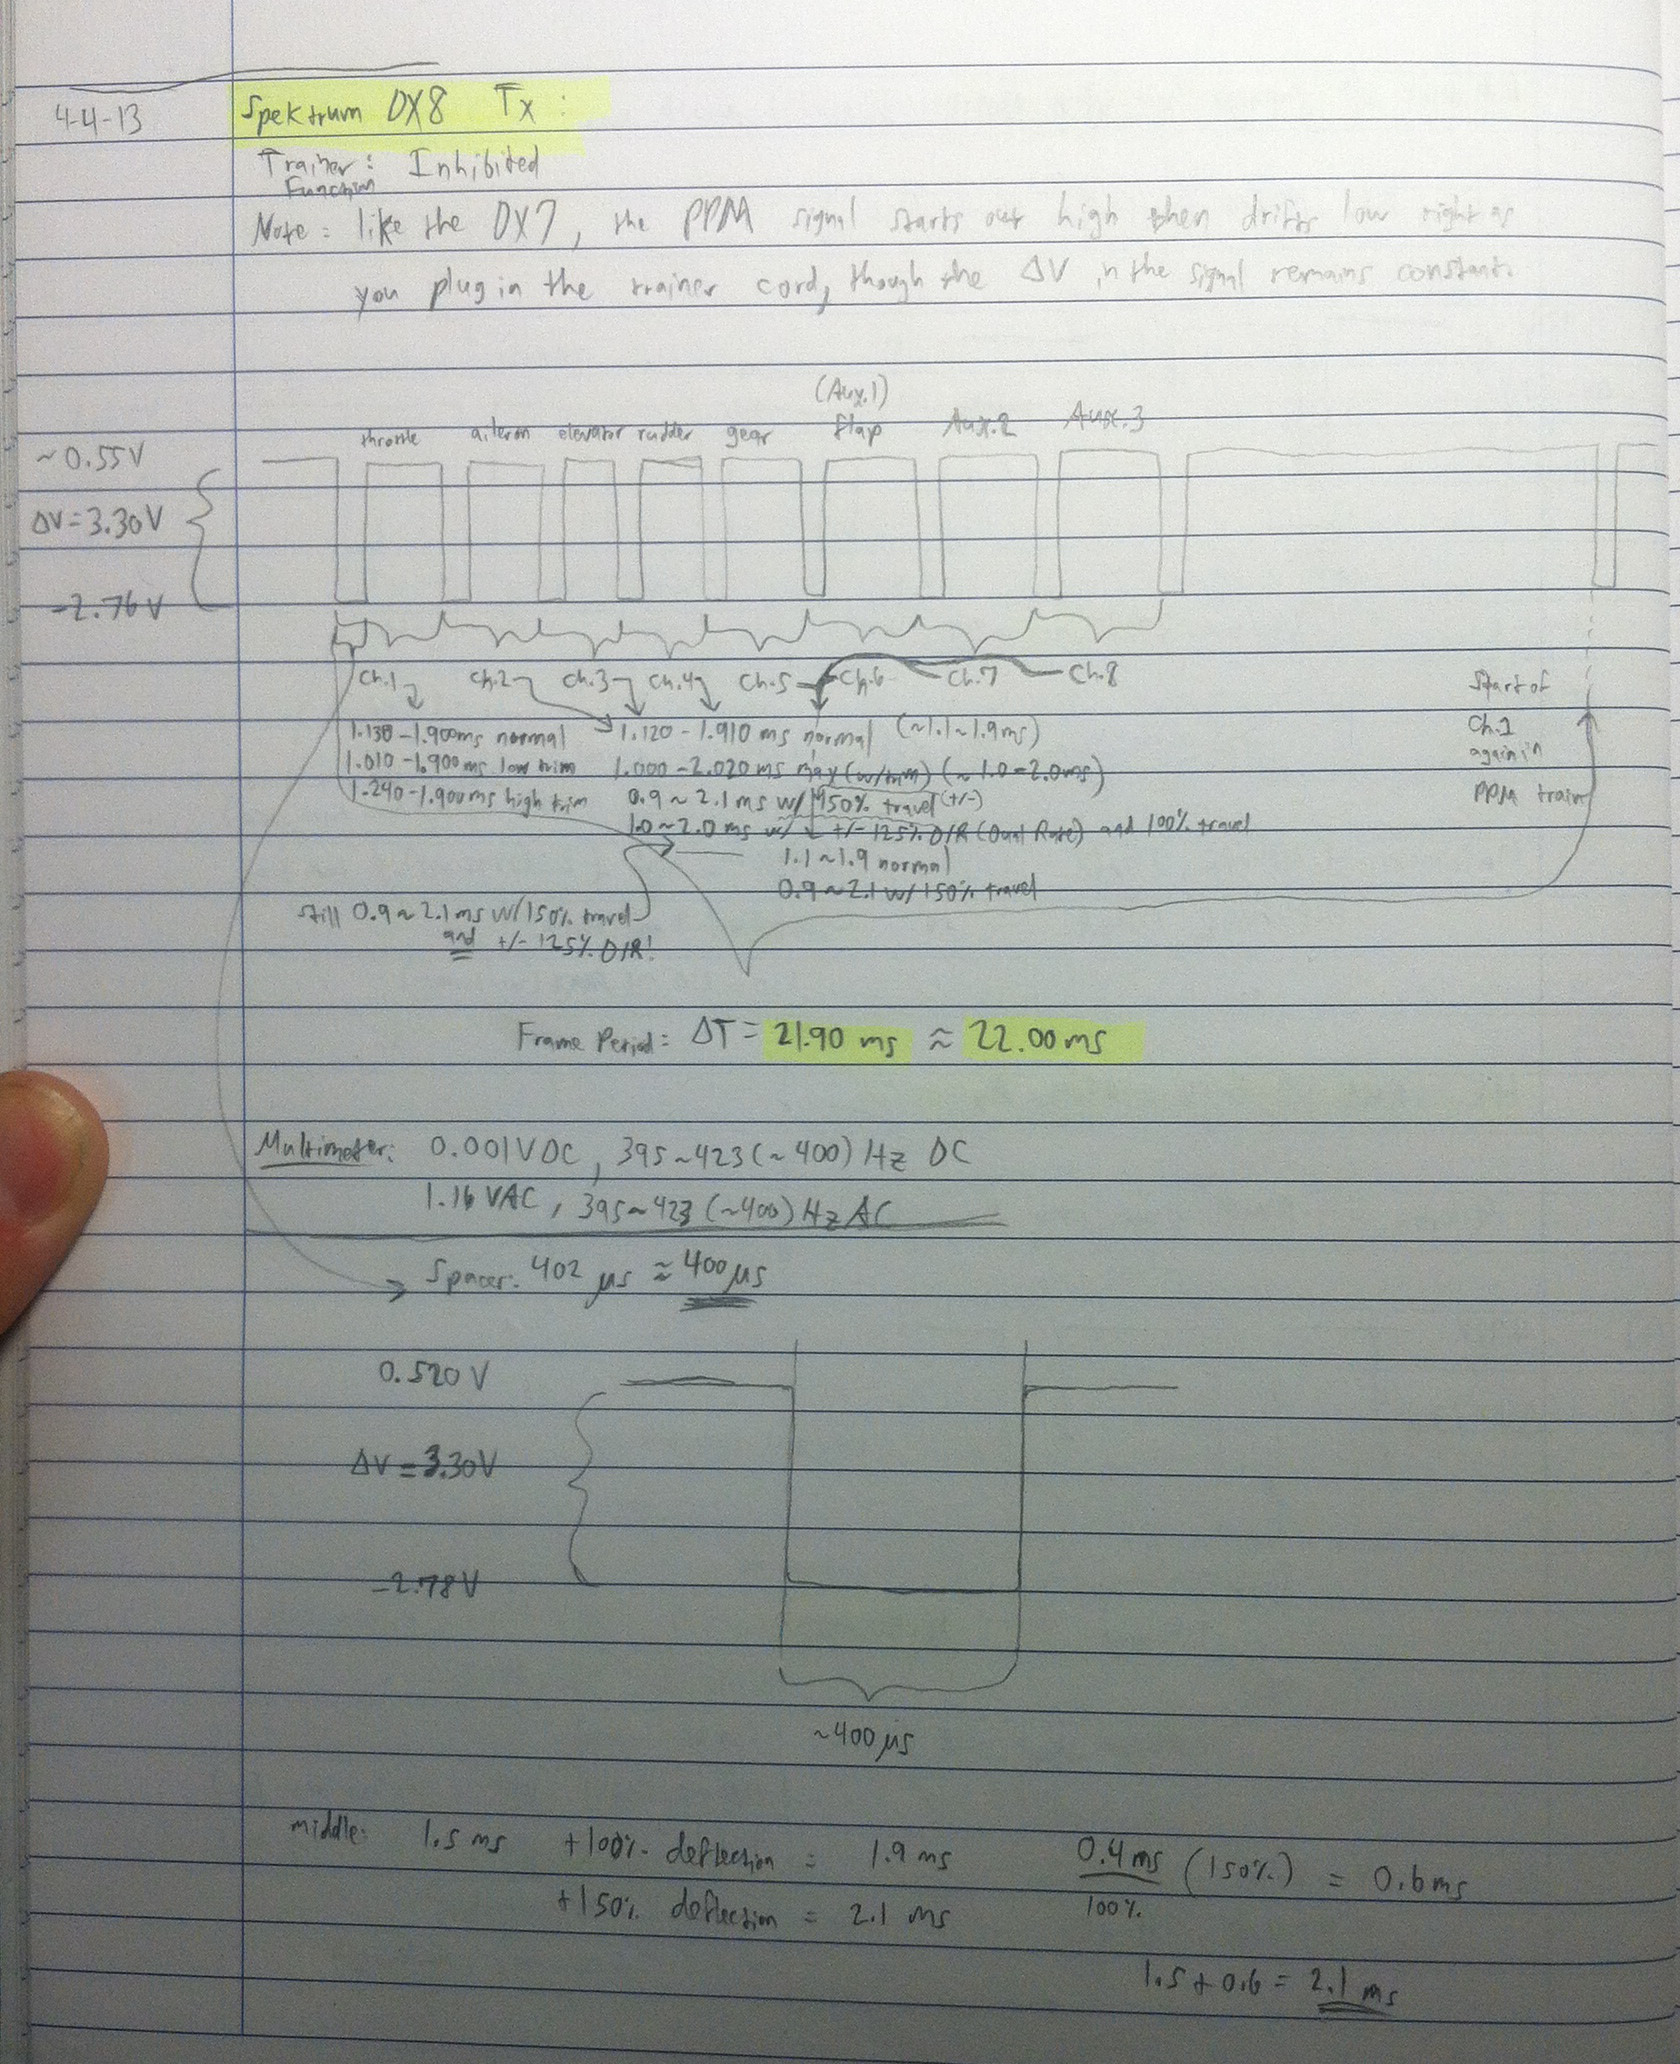 4-4-13
Spektrum DX8 Tx:
Trainer: Inhibited
Function
Note: like the DX7, the PPM signal starts out high then drifts low right as
you plug in the trainer cord, though the ΔV in the signal remains constant.
(Aux.1)
throttle aileron elevator rudder gear flap Aux.2 Aux.3
~0.55V
ΔV=3.30V
-2.76V
Ch.1 Ch.2 Ch.3 Ch.4 Ch.5 Ch.6 Ch.7 Ch.8
Start of
Ch.1
again in
PPM train
1.130-1.900ms normal
1.010-1.900ms low trim
1.240-1.900ms high trim
1.120-1.910 ms normal (~1.1~1.9ms)
1.000-2.020 ms max (w/trim) (~1.0-2.0ms)
0.9~2.1 ms w/ 150% travel (+/-)
1.0~2.0 ms w/ +/- 125% D/R (Dual Rate) and 100% travel
1.1~1.9 normal
0.9~2.1 w/ 150% travel
still 0.9~2.1ms w/150% travel
and +/- 125% D/R!
Frame Period: ΔT = 21.90 ms ≈ 22.00ms
Multimeter: 0.001VDC, 395~423(~400) Hz DC
1.16 VAC, 395~423 (~400) Hz AC
Spacer: 402 µs ≈ 400µs
0.520 V
ΔV = 3.30V
-2.78V
~400µs
middle: 1.5 ms +100% deflection = 1.9 ms 0.4ms (150%) = 0.6ms
100%
+150% deflection = 2.1 ms
1.5+0.6 = 2.1 ms